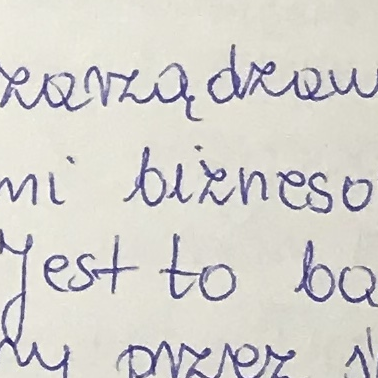 zarządzan
mi bizneso
Jest to ba
ny przez